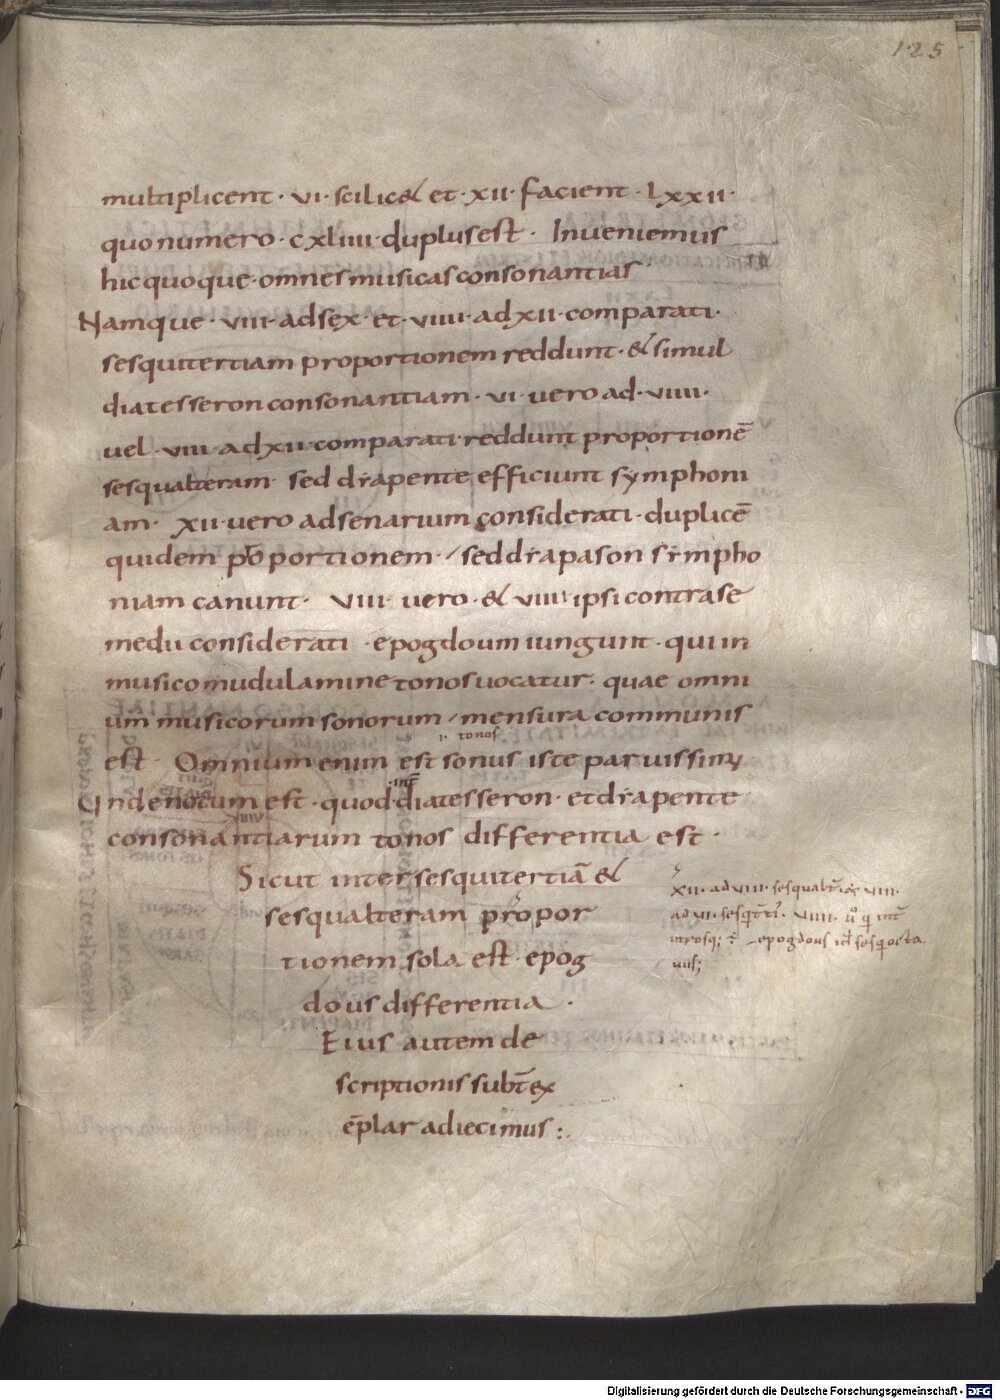 125
multiplicent · vi · scilic& et · xii · facient · lxxii ·
quo numero · cxliiii · duplus est · Inveniemus
hic quoque · omnes musicas consonantias
Namque · viii · ad sex · et · viiii · ad xii · comparati ·
sesquitertiam proportionem reddunt · & simul
diatesseron consonantiam · vi · uero ad · viiii ·
uel · viii · ad xii · comparati · reddunt proportionē
sesqualteram · sed diapente efficiunt symphoni
am · xii · uero ad senarium considerati · duplicē
quidem proportionem · sed diapason simpho
niam canunt · viii · uero · & viiii · ipsi contra se
medii considerati · epogdoum iungunt · qui in
musico mudulamine tonos uocatur · quae omni
um musicorum sonorum mensura communis
i. tonos
est · Omnium enim est sonus iste paruissimus
Unde notum est · quod diatesseron · et diapente
int̄
consonantiarum tonos differentia est ·
Sicut inter sesquitertiā &
sesqualteram propor
tionem sola est · epog
dous differentia ·
Eius autem de
scriptionis subt̄ ex
ēplar adiecimus :.
xii · ad viii · sesqualt̄
ad vi · viiii ·
epogdous sesqocta
uus;
Digitalisierung gefördert durch die Deutsche Forschungsgemeinschaft - DFG